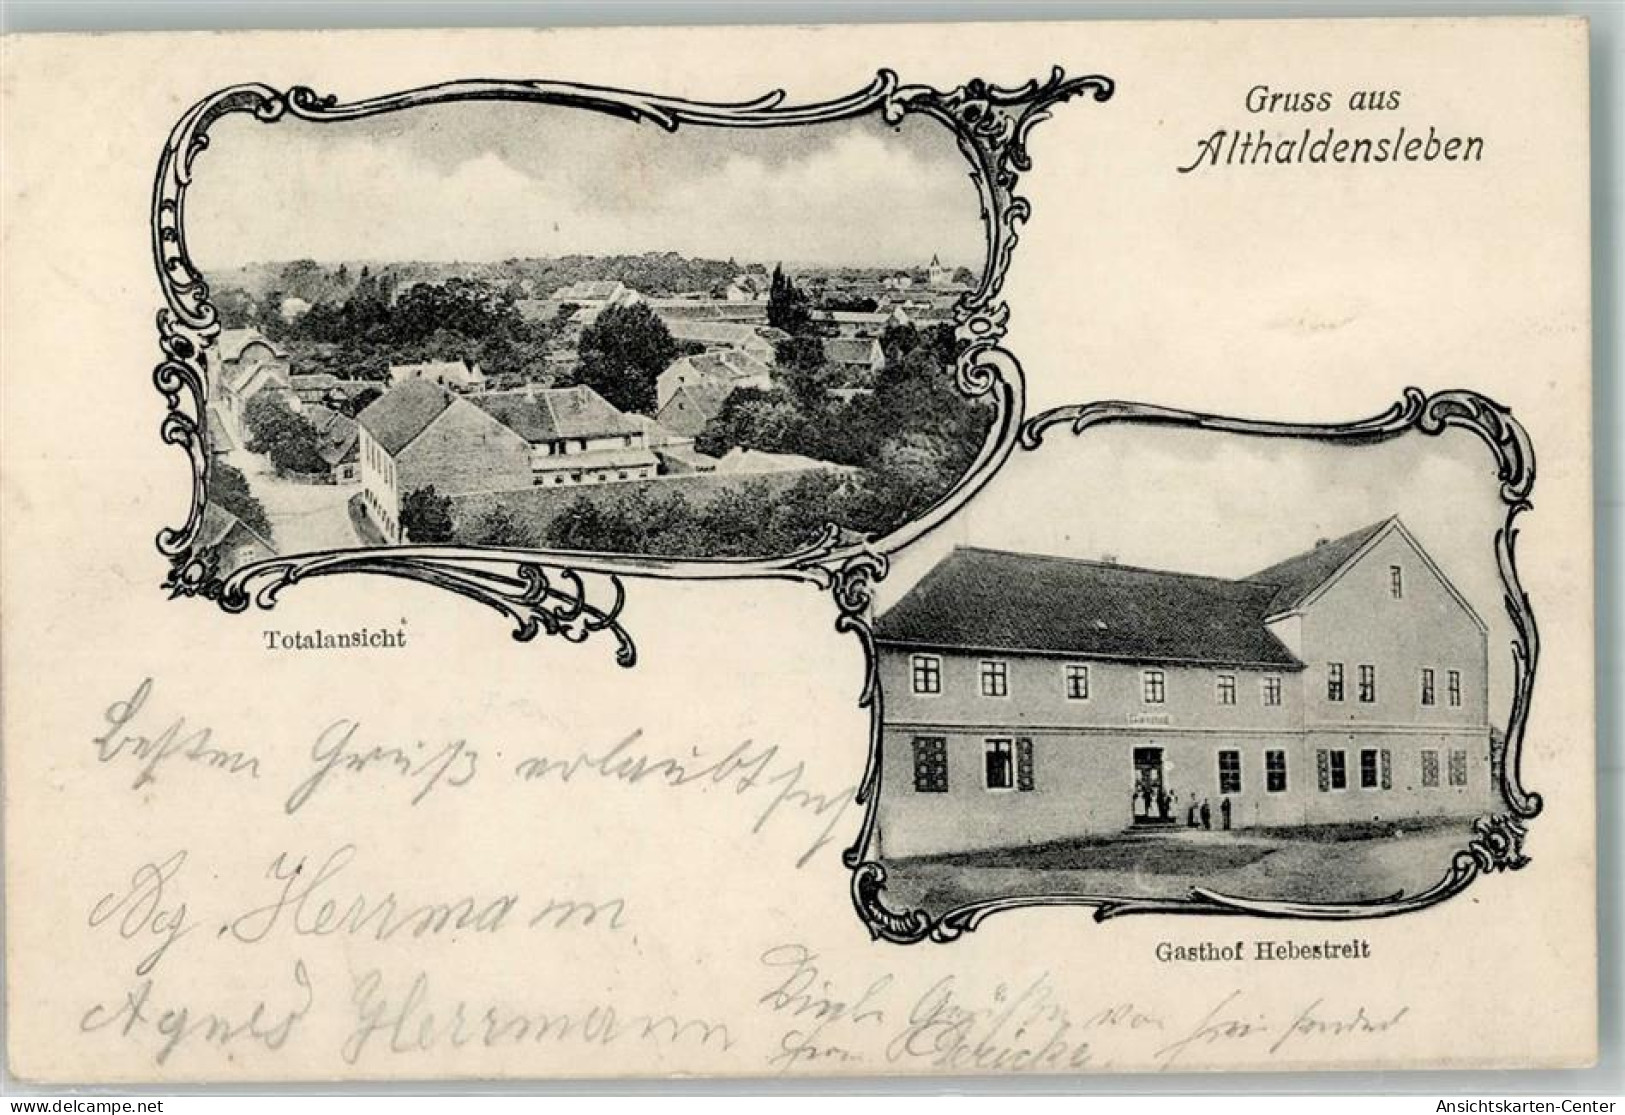 Gruss aus
Althaldensleben
Totalansicht
Gasthof
Gasthof Hebestreit
Besten Gruß erlaubt sich
Herrmann
Agnes Herrmann
Viele Grüße von
delcampe.net
Ansichtskarten-Center